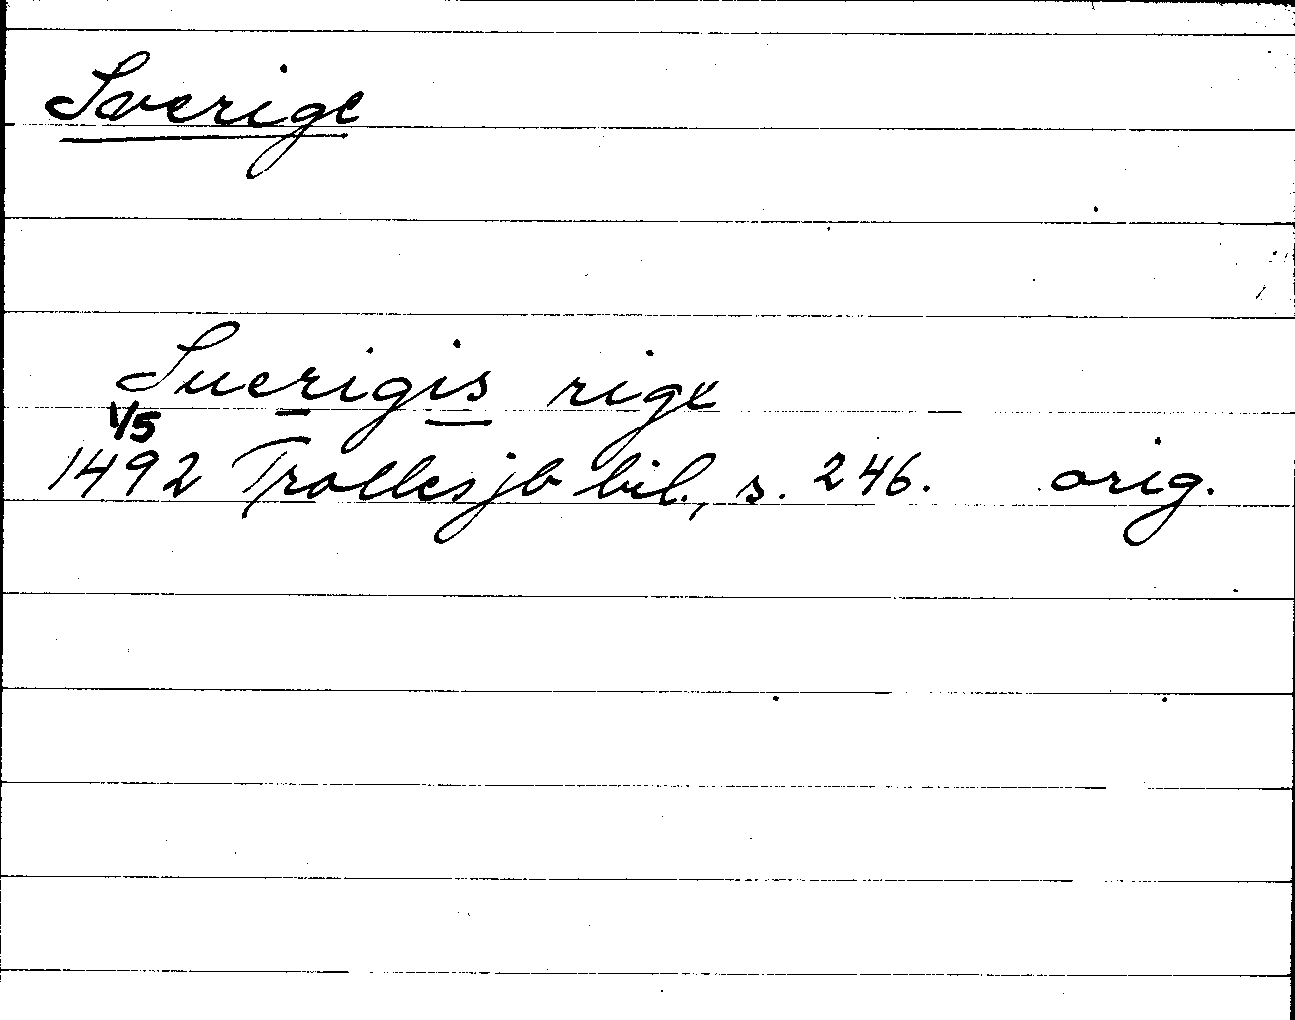 Sverige
Suerigis rige
1/5
1492 Trolles jb bil., s. 246. orig.